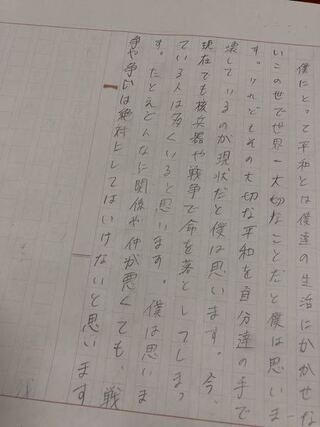 僕にとって平和とは僕達の生活にかかせな
いこの世で世界一大切なことだと僕は思いま
す。けれどもその大切な平和を自分達の手で
壊しているのが現状だと僕は思います。今、
現在でも核兵器や戦争で命を落としてしまっ
ている人は多くいると思います。僕は思いま
す。たとえどんなに関係や仲が悪くても、戦
争や争いは絶対にしてはいけないと思います